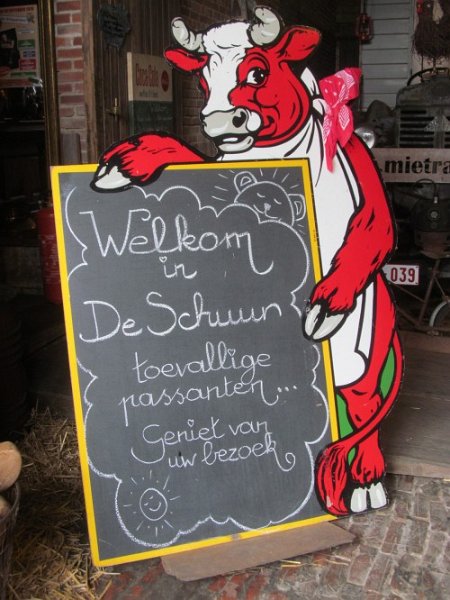 Welkom
in
De Schuur
toevallige
passanten...
Geniet van
uw bezoek
.mietra
039